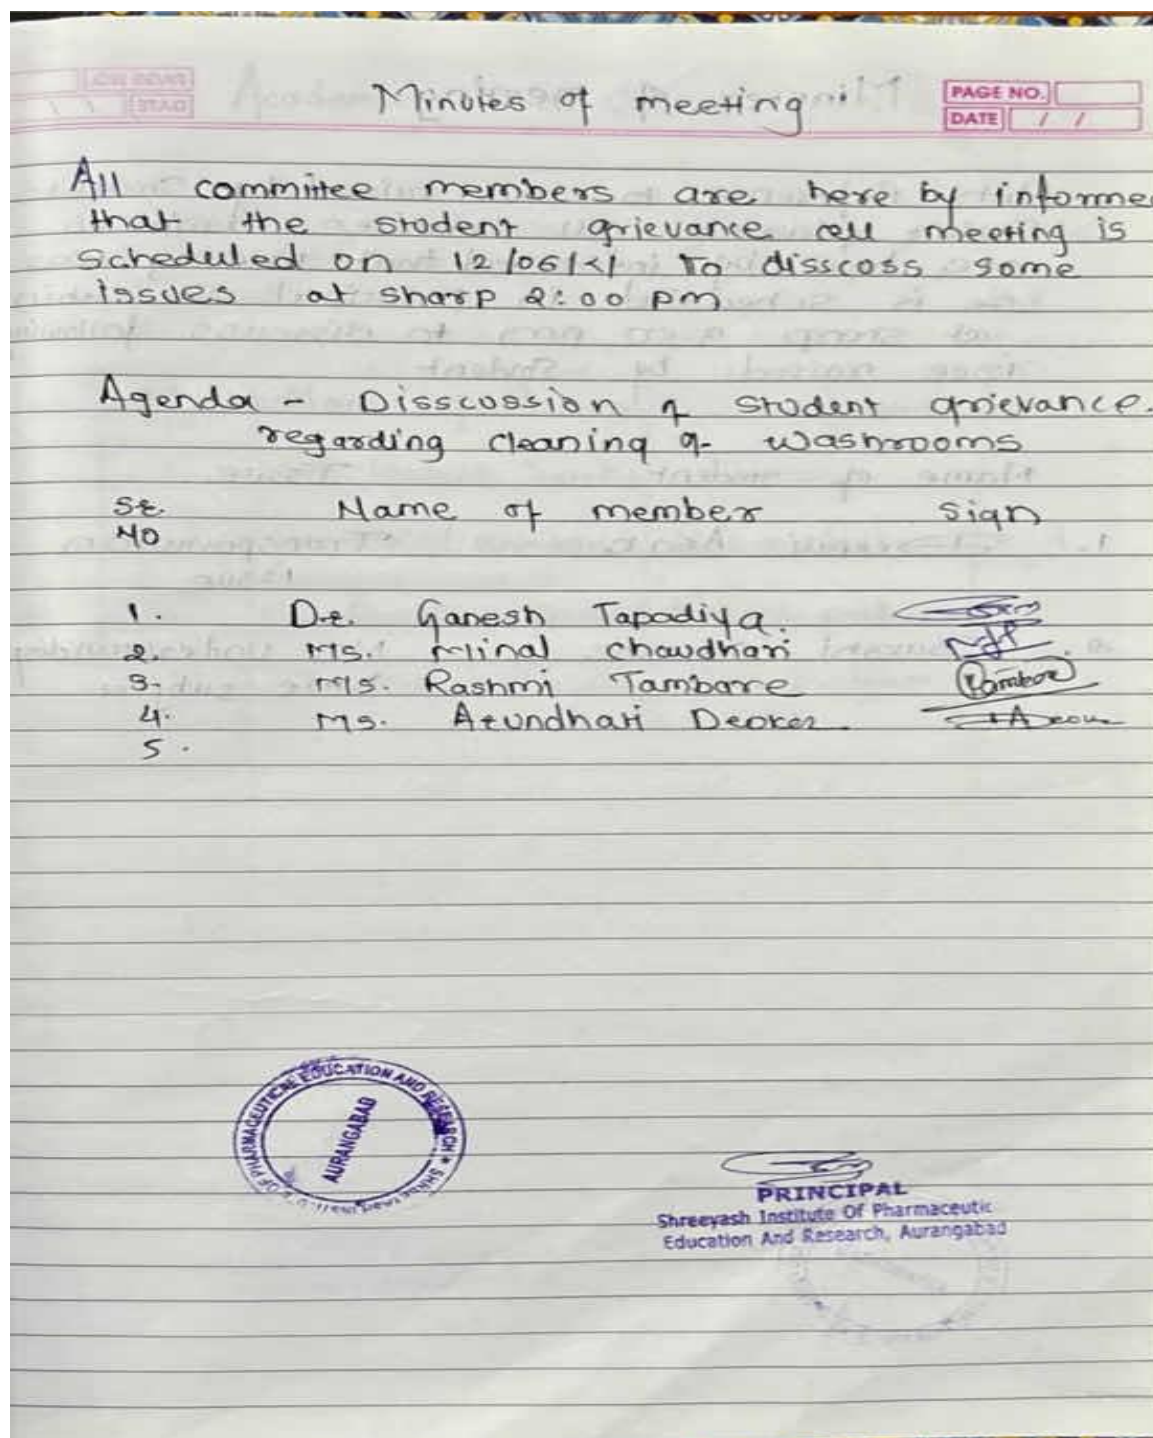 Minutes of meeting
PAGE NO.
DATE / /
All committee members are here by informe
that the student grievance cell meeting is
scheduled on 12/06/21 to disscoss some
issues at sharp 2:00 pm
Agenda - Disscussion of student grievance.
regarding cleaning of washrooms
Sr. Name of member sign
NO
1. Dr. Ganesh Tapadiya.
2. Ms. Minal Chaudhari
3. Ms. Rashmi Tambare
4. Ms. Arundhati Deoker
5.
OF PHARMACEUTICAL EDUCATION AND RESEARCH
AURANGABAD
PRINCIPAL
Shreeyash Institute Of Pharmaceutic
Education And Research, Aurangabad